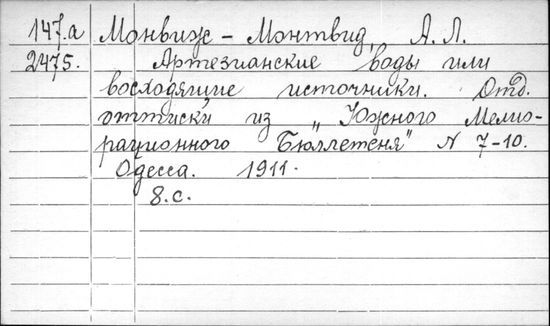 147.а Монвиж - Монтвид, А. Л.
2475. Артезианские воды или
восходящие источники. Отд.
оттиски из „Южного Мелио-
рационного Бюллетеня" N 7-10.
Одесса. 1911.
8. с.